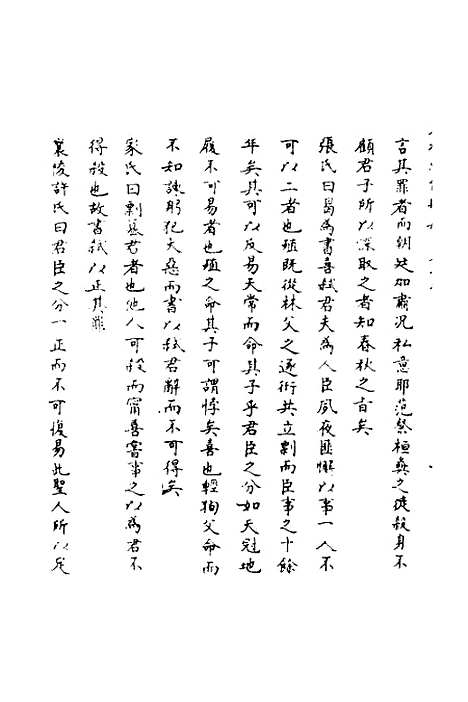 言其罪者而朝廷加肅況私意耶范粲桓彝之徒殺身不
顧君子所以深取之者知春秋之旨矣
張氏曰曷為書喜弒君夫為人臣夙夜匪懈以事一人不
可以二者也殖既從林父之逐衎共立剽而臣事之十餘
年矣其可以反易天常而命其子乎君臣之分如天冠地
履不可易者也殖之命其子可謂悖矣喜也輕狥父命而
不知諫躬犯大惡而書以弒君辭而不可得矣
家氏曰剽簒君者也他人可殺而甯喜嘗事之以為君不
得殺也故書弒以正其罪
襄陵許氏曰君臣之分一正而不可復易此聖人所以戒